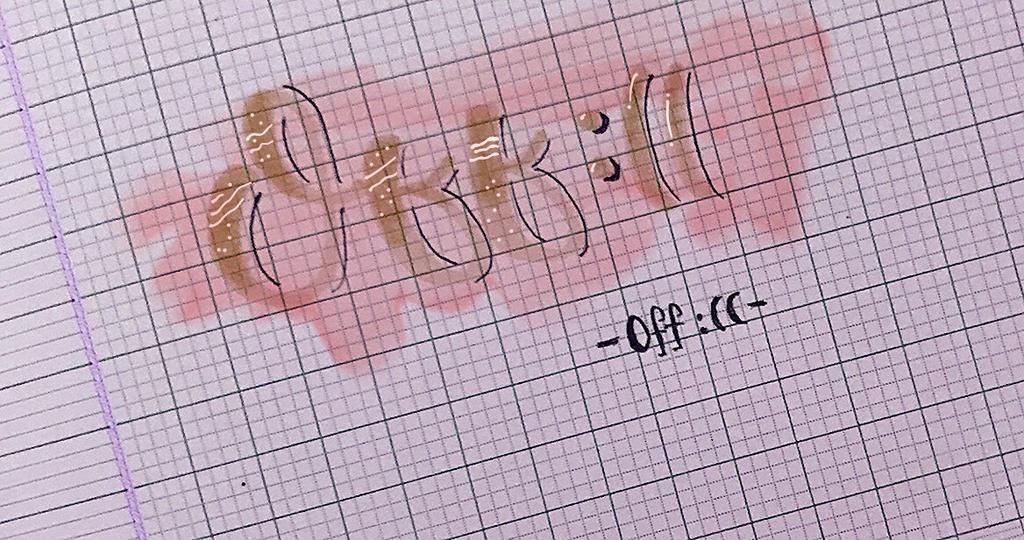 Off :((
- Off :(( -